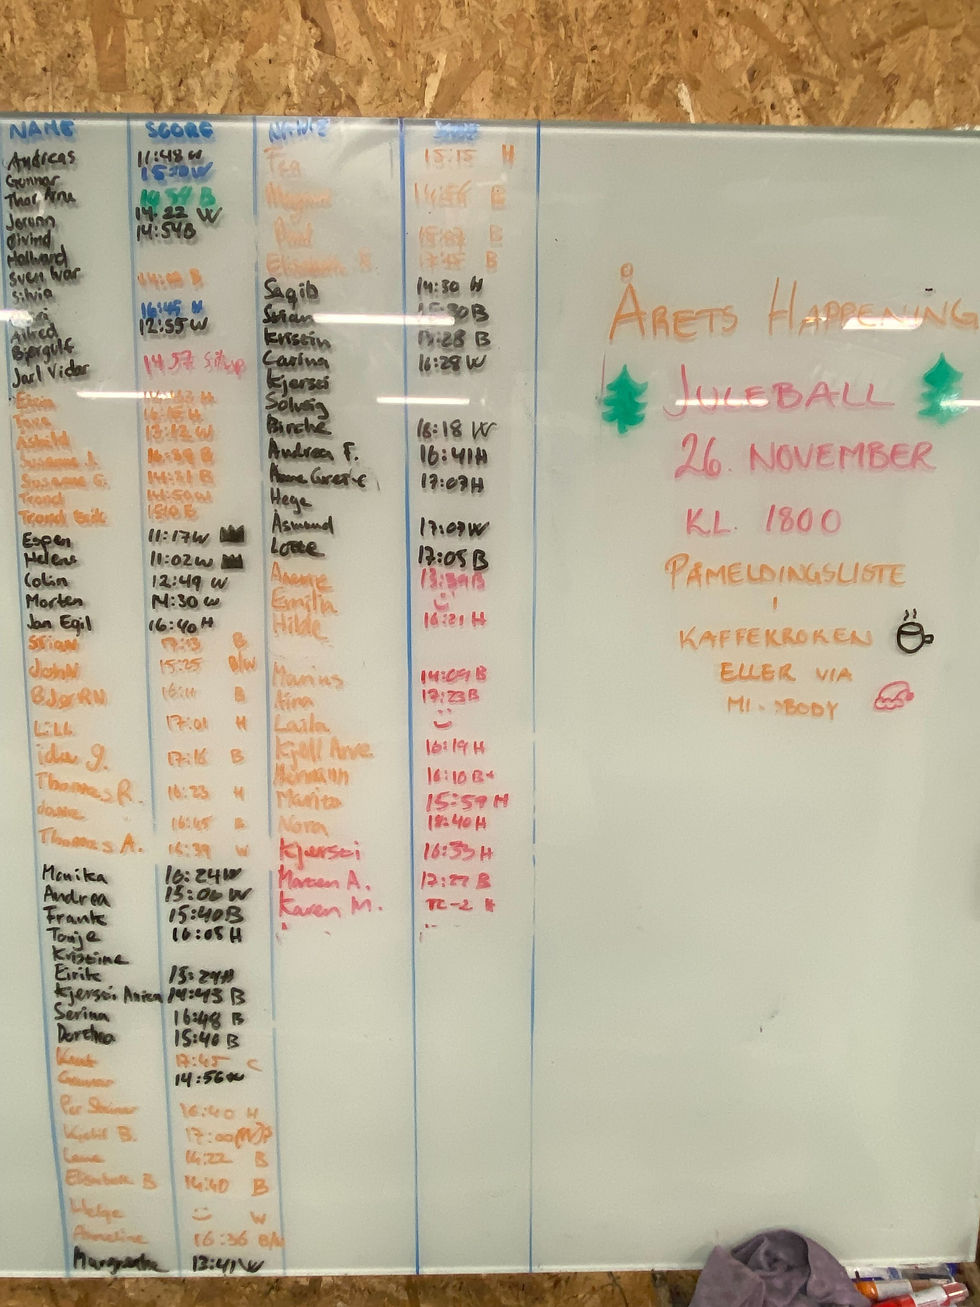 NAME SCORE
Andreas 11:48 W
Gunnar
Thor Arne B
14:22 W
Øivind 14:54 B
Hallvard
Sven Ivar
Silvia
16:45 H
Alfred 12:55 W
Bjørgulf
Jarl Vidar 14:57
Eirin H
Tora
Astrid 13:12 W
Susanne J.
Susanne G. 14:31 B
Trond 14:50 W
Trond Erik
Espen 11:17 W
Helene 11:02 W
Colin 12:49 W
Morten 14:30 W
Jan Egil 16:40 H
Stian B
John 15:25 B/W
BJØRN B
LiLL 17:01 H
ida g. 17:16 B
Thomas R. 16:23 H
16:45 B
Thomas A. 16:39 W
Monika 16:24 W
Andrea 15:06 W
Frank 15:40 B
Tonje 16:05 H
Kristine
Eirik 15:29 H
Kjersti Anita 14:43 B
Serina 16:48 B
Dorthea 15:40 B
Knut 17:45 C
Gunnar 14:56 W
Per Steinar 16:40 H
Kjetil B. 17:00 (W)?
Lene 14:22 B
Elisabeth B 14:40 B
Helge W
Anneline 16:36 B/W
Margrethe 13:41 W
15:15 H
B
B
Elisabeth B
Saqib 14:30 W
Stian B
Kristin 17:28 B
Carina 16:28 W
Kjersti
Solveig
Birthe 16:18 W
Andrea F. 16:41 H
Anne Grete 17:07 H
Hege
Åsmund 17:07 W
Lotte 17:05 B
B
Emilia
Hilde 16:21 H
Marius 14:09 B
Aina 17:23 B
Laila
Kjell Arve 16:19 H
Hermann 16:10 B+
Marita 15:59 H
Nora 18:40 H
Kjersti 16:33 H
Morten A. 17:27 B
Karen M. TC-2 H
ÅRETS HAPPENING
JULEBALL
26. NOVEMBER
KL. 1800
PÅMELDINGSLISTE
I
KAFFEKROKEN
ELLER VIA
BODY